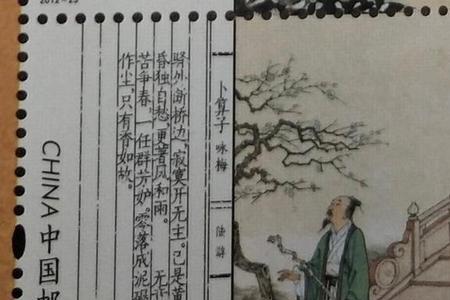 2012-23
卜算子 咏梅
陆游
驿外断桥边，寂寞开无主。已是黄
昏独自愁，更著风和雨。 无意
苦争春，一任群芳妒。零落成泥碾
作尘，只有香如故。
CHINA 中国邮